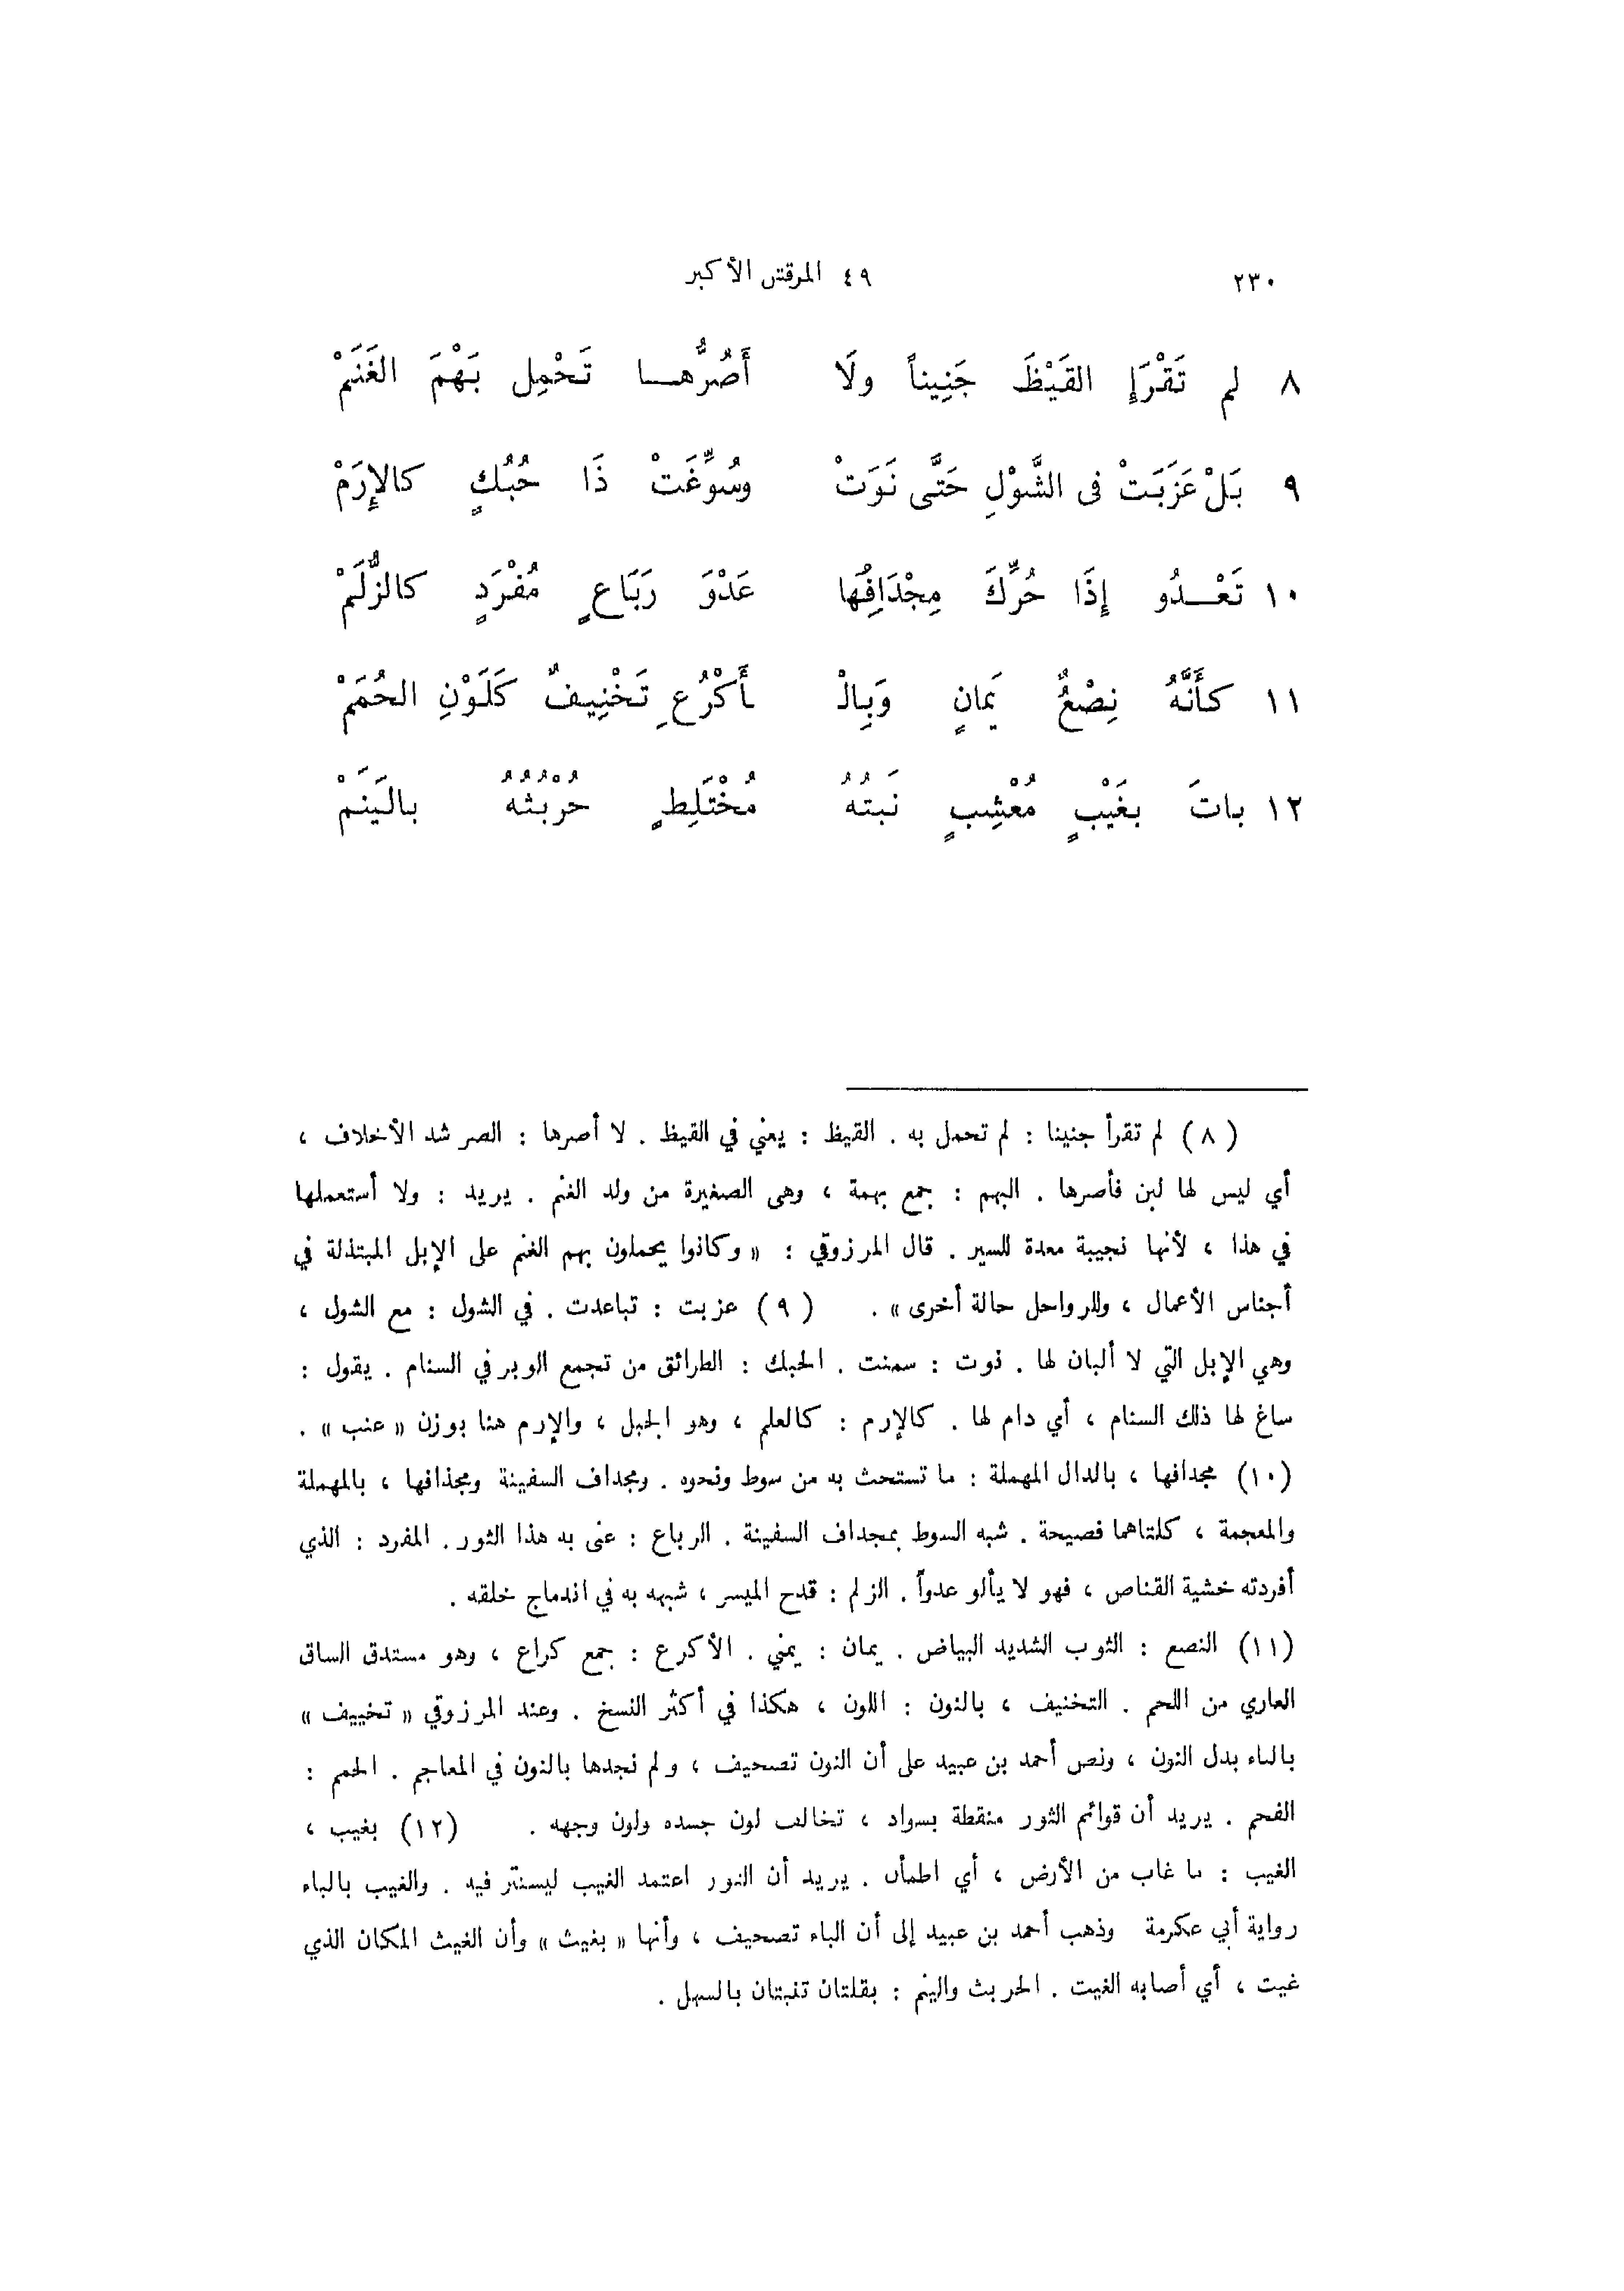 ٢٣٠ ٤٩ المرقش الأكبر
٨ لم تَقْرَإِ القَيْظَ جَنِيناً ولَا أَصُرُّهـــا تَحْمِل بَهْمَ الغَنَمْ
٩ بَلْ عَزَبَتْ فى الشَّوْلِ حَتَّى نَوَتْ وسُوِّغَتْ ذَا حُبُكٍ كالإِرَمْ
١٠ تَعْــدُو إِذَا حُرِّكَ مِجْدَافُهَا عَدْوَ رَبَاعٍ مُفْرَدٍ كالزُّلَمْ
١١ كأَنَّهُ نِصْعٌ يَمانٍ وَبِالْـ ـأَكْرُعِ تَخْنِيفٌ كَلَوْنِ الحُمَمْ
١٢ باتَ بغَيْبٍ مُعْشِبٍ نَبتُهُ مُخْتَلِطٍ حُرْبُثُهُ بالَيَنَمْ
( ٨ ) لم تقرأ جنينا : لم تحمل به . القيظ : يعني في القيظ . لا أصرها : الصر شد الأخلاف ،
أي ليس لها لبن فأصرها . البهم : جمع بهمة ، وهى الصغيرة من ولد الغنم . يريد : ولا أستعملها
في هذا ، لأنها نجيبة معدة للسير . قال المرزوقي : « وكانوا يحملون بهم الغنم على الإبل المبتذلة في
أجناس الأعمال ، وللرواحل حالة أخرى » . ( ٩ ) عزبت : تباعدت . في الشول : مع الشول ،
وهي الإبل التي لا ألبان لها . نوت : سمنت . الحبك : الطرائق من تجمع الوبر في السنام . يقول :
ساغ لها ذلك السنام ، أي دام لها . كالإرم : كالعلم ، وهو الجبل ، والإرم هنا بوزن « عنب » .
(١٠) مجدافها ، بالدال المهملة : ما تستحث به من سوط ونحوه . ومجداف السفينة ومجذافها ، بالمهملة
والمعجمة ، كلتاهما فصيحة . شبه السوط بمجداف السفينة . الرباع : عنى به هذا الثور . المفرد : الذي
أفردته خشية القناص ، فهو لا يألو عدواً . الزلم : قدح الميسر ، شبهه به في اندماج خلقه .
(١١) النصع : الثوب الشديد البياض . يمان : يمني . الأكرع : جمع كراع ، وهو مستدق الساق
العاري من اللحم . التخنيف ، بالنون : اللون ، هكذا في أكثر النسخ . وعند المرزوقي « تخييف »
بالياء بدل النون ، ونص أحمد بن عبيد على أن النون تصحيف ، ولم نجدها بالنون في المعاجم . الحمم :
الفحم . يريد أن قوائم الثور منقطة بسواد ، تخالف لون جسده ولون وجهه . (١٢) بغيب ،
الغيب : ما غاب من الأرض ، أي اطمأن . يريد أن الثور اعتمد الغيب ليستتر فيه . والغيب بالباء
رواية أبي عكرمة وذهب أحمد بن عبيد إلى أن الباء تصحيف ، وأنها « بغيث » وأن الغيث المكان الذي
غيث ، أي أصابه الغيث . الحربث والينم : بقلتان تنبتان بالسهل .